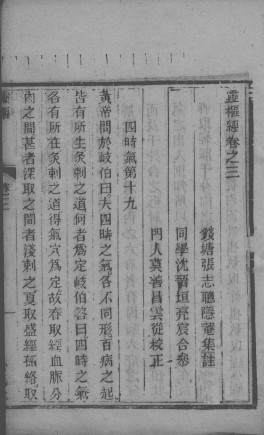 靈樞經卷之三
錢塘張志聰隱菴集註
同學沈晉垣亮宸合參
門人莫善昌雲從校正
四時氣第十九
黃帝問於岐伯曰夫四時之氣各不同形百病之起
皆有所生灸刺之道何者為定岐伯答曰四時之氣
各有所在灸刺之道得氣穴為定故春取經血脈分
肉之間甚者深取之間者淺刺之夏取盛經孫絡取